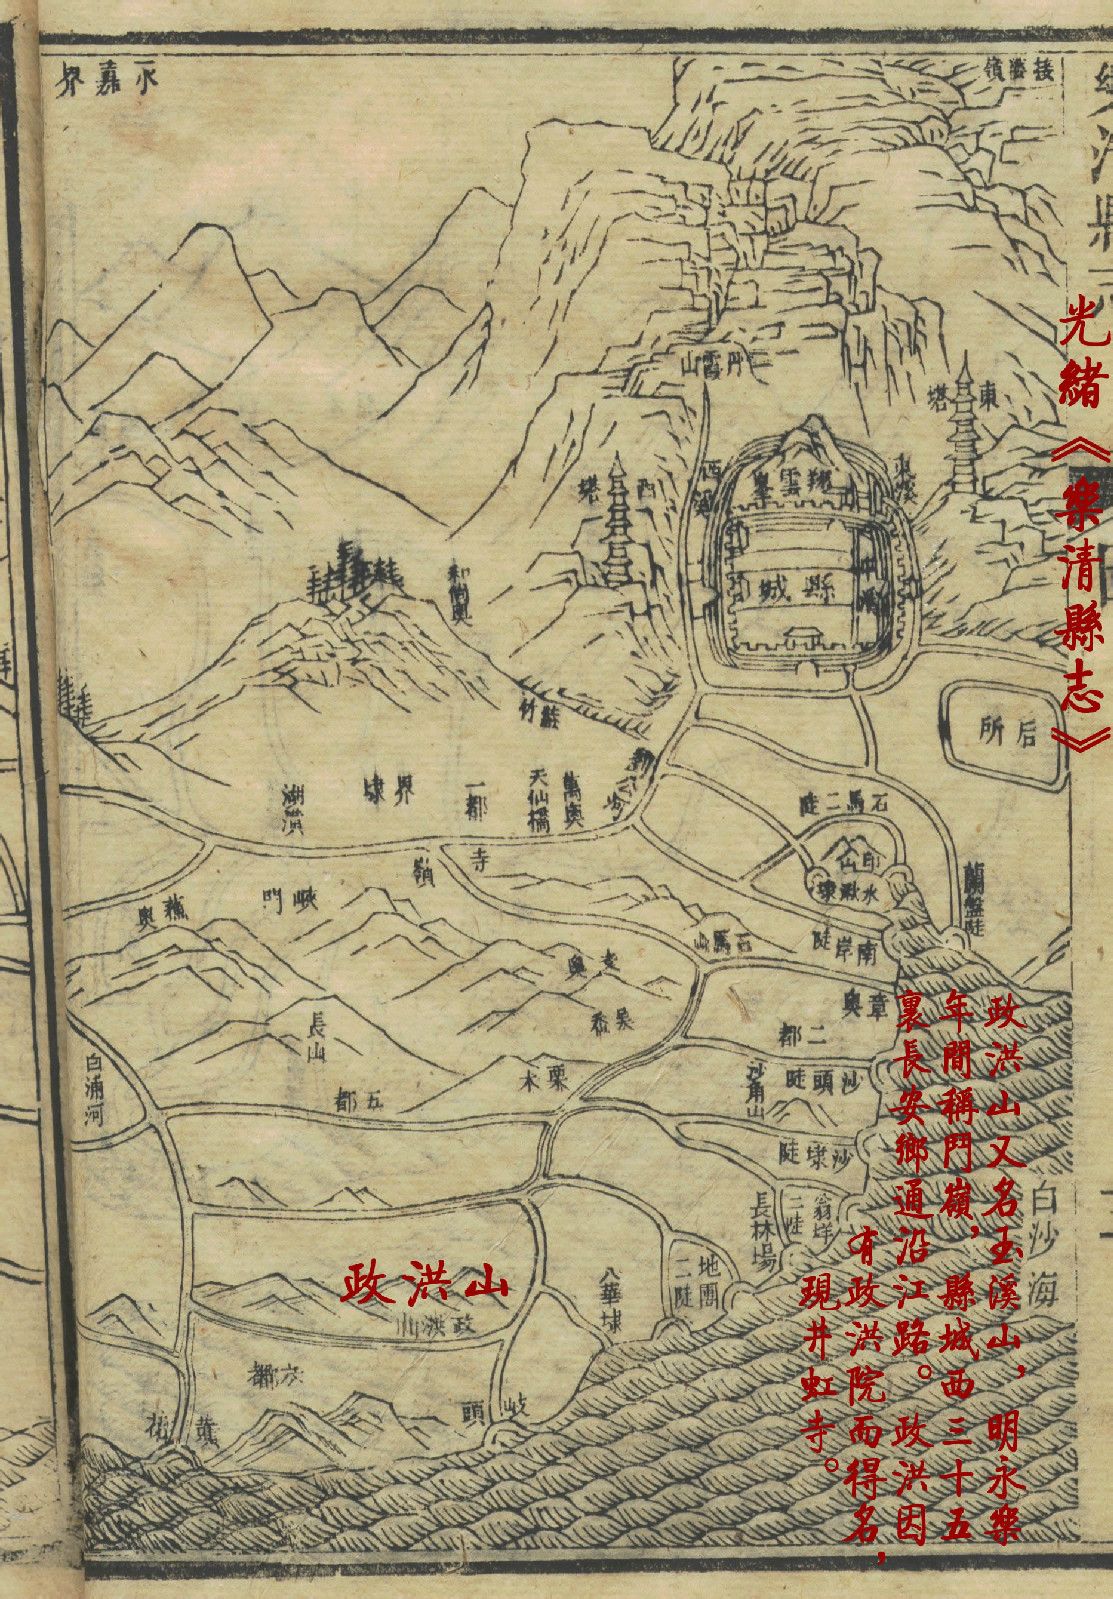 光緒《樂清縣志》
政洪山又名玉溪山，明永樂
年間稱鬥嶺，縣城西三十五
裏長安鄉通沿江路。政洪因
有政洪院而得名，
現井虹寺。
政洪山
永嘉界
丹霞山
東塔
西塔
翔雲峯
縣城
后所
竹
一都
天仙橋
萬奧
湖濆
界埭
寺
嶺
峽門
石馬二陡
印山
南岸陡
石馬山
章奧
二都
長山
五都
栗木
白浦河
沙角山
沙頭陡
沙埭陡
長林場
翁垟二陡
地團二陡
八華埭
白沙海
政洪山
六都
岐頭
黃花